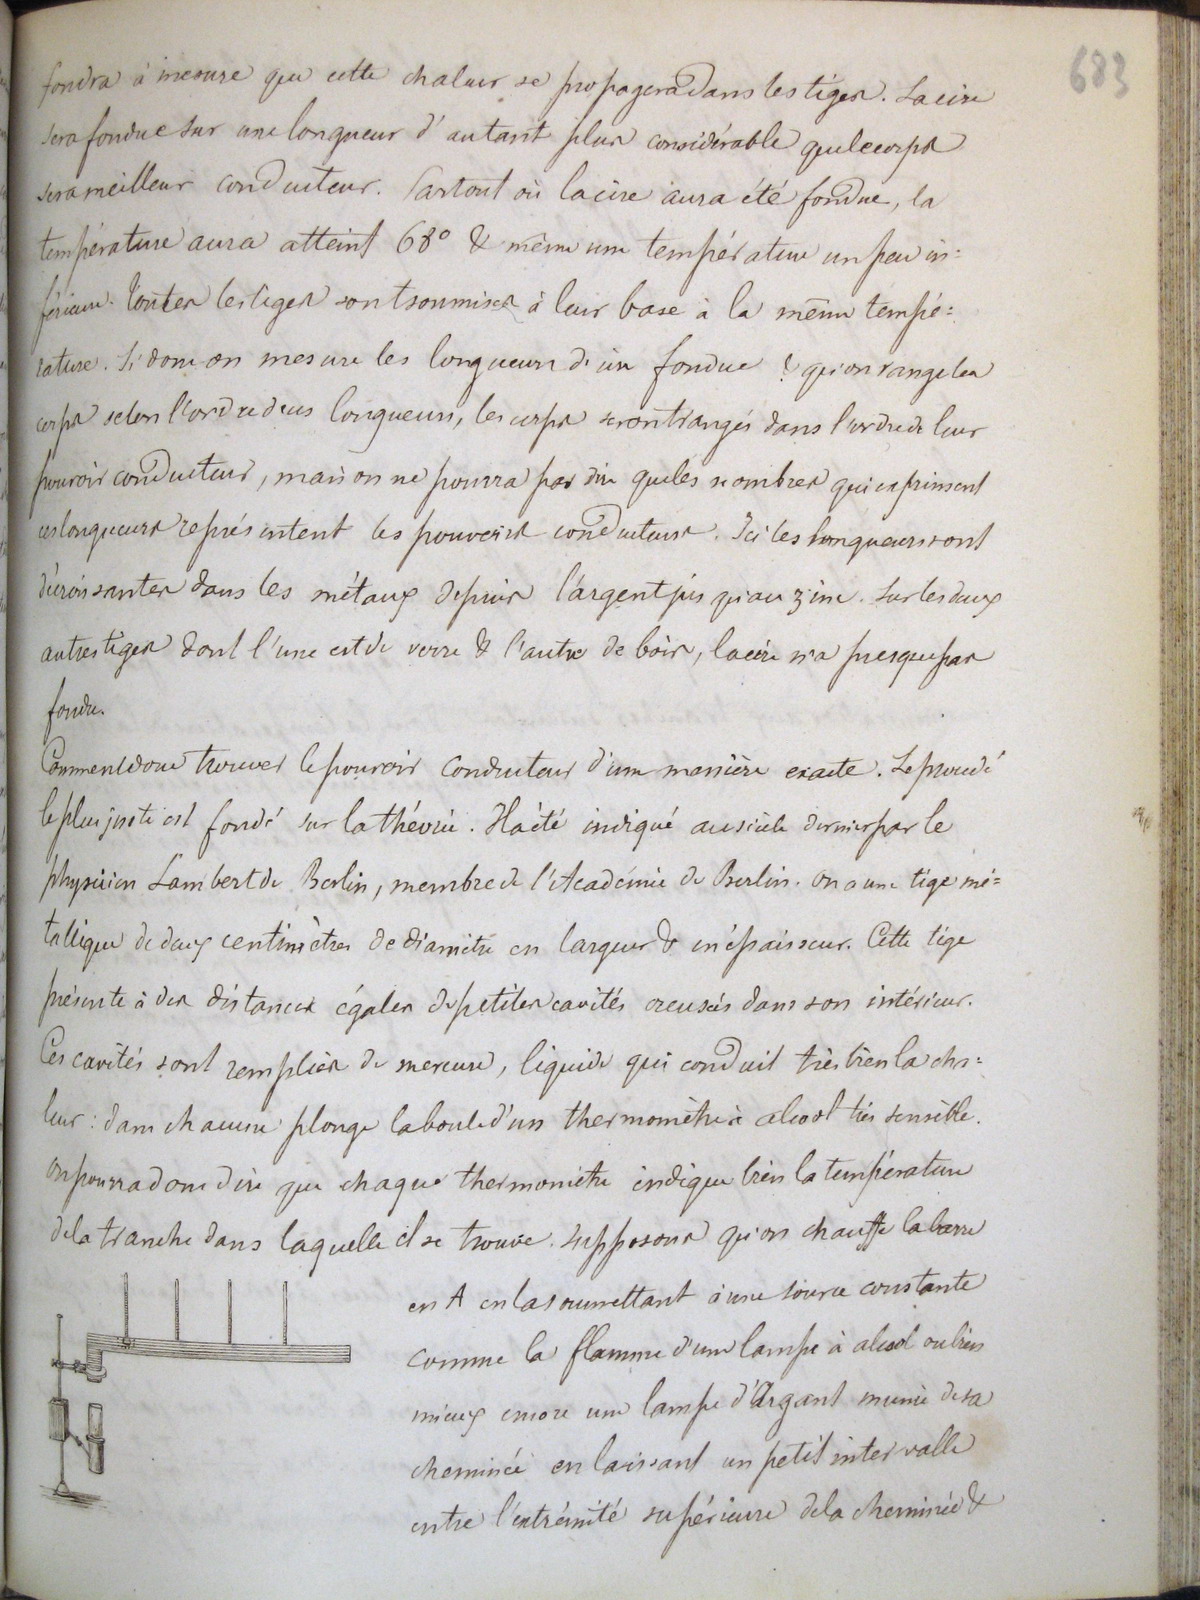 683
fondra à mesure que cette chaleur se propagera dans les tiges. La cire
sera fondue sur une longueur d'autant plus considérable que le corps
sera meilleur conducteur. Partout où la cire aura été fondue, la
température aura atteint 68° & même une température un peu in=
férieure. Toutes les tiges sont soumises à leur base à la même tempé=
rature. Si donc on mesure les longueurs de cire fondue & qu'on range les
corps selon l'ordre de ces longueurs, les corps seront rangés dans l'ordre de leur
pouvoir conducteur, mais on ne pourra pas dire que les nombres qui expriment
ces longueurs représentent les pouvoirs conducteurs. Ici les longueurs sont
décroissantes dans les métaux depuis l'argent jusqu'au zinc. Sur les deux
autres tiges dont l'une est de verre & l'autre de bois, la cire n'a presque pas
fondu.
Comment donc trouver le pouvoir conducteur d'une manière exacte. Le procédé
le plus juste est fondé sur la théorie. Il a été indiqué au siècle dernier par le
physicien Lambert de Berlin, membre de l'Académie de Berlin. On a une tige mé=
tallique de deux centimètres de diamètre en largeur & en épaisseur. Cette tige
présente à des distances égales de petites cavités creusées dans son intérieur.
Ces cavités sont remplies de mercure, liquide qui conduit très bien la cha=
leur : dans chacune plonge la boule d'un thermomètre à alcool très sensible.
On pourra donc dire que chaque thermomètre indique bien la température
de la tranche dans laquelle il se trouve. Supposons qu'on chauffe la barre
en A en la soumettant à une source constante
comme la flamme d'une lampe à alcool ou bien
mieux encore une lampe d'Argant munie de sa
cheminée en laissant un petit intervalle
entre l'extrémité supérieure de la cheminée &